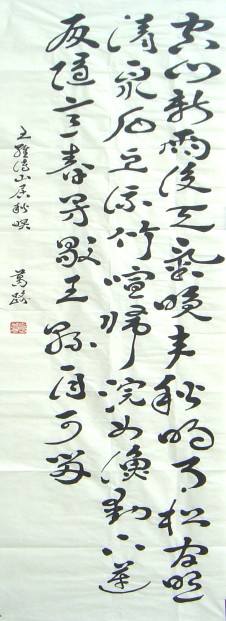 空山新雨後天氣晚来秋明月松间照
清泉石上流竹喧歸浣女漁動下蓮
舟随意春芳歇王孫自可留
王維詩山居秋暝 萬